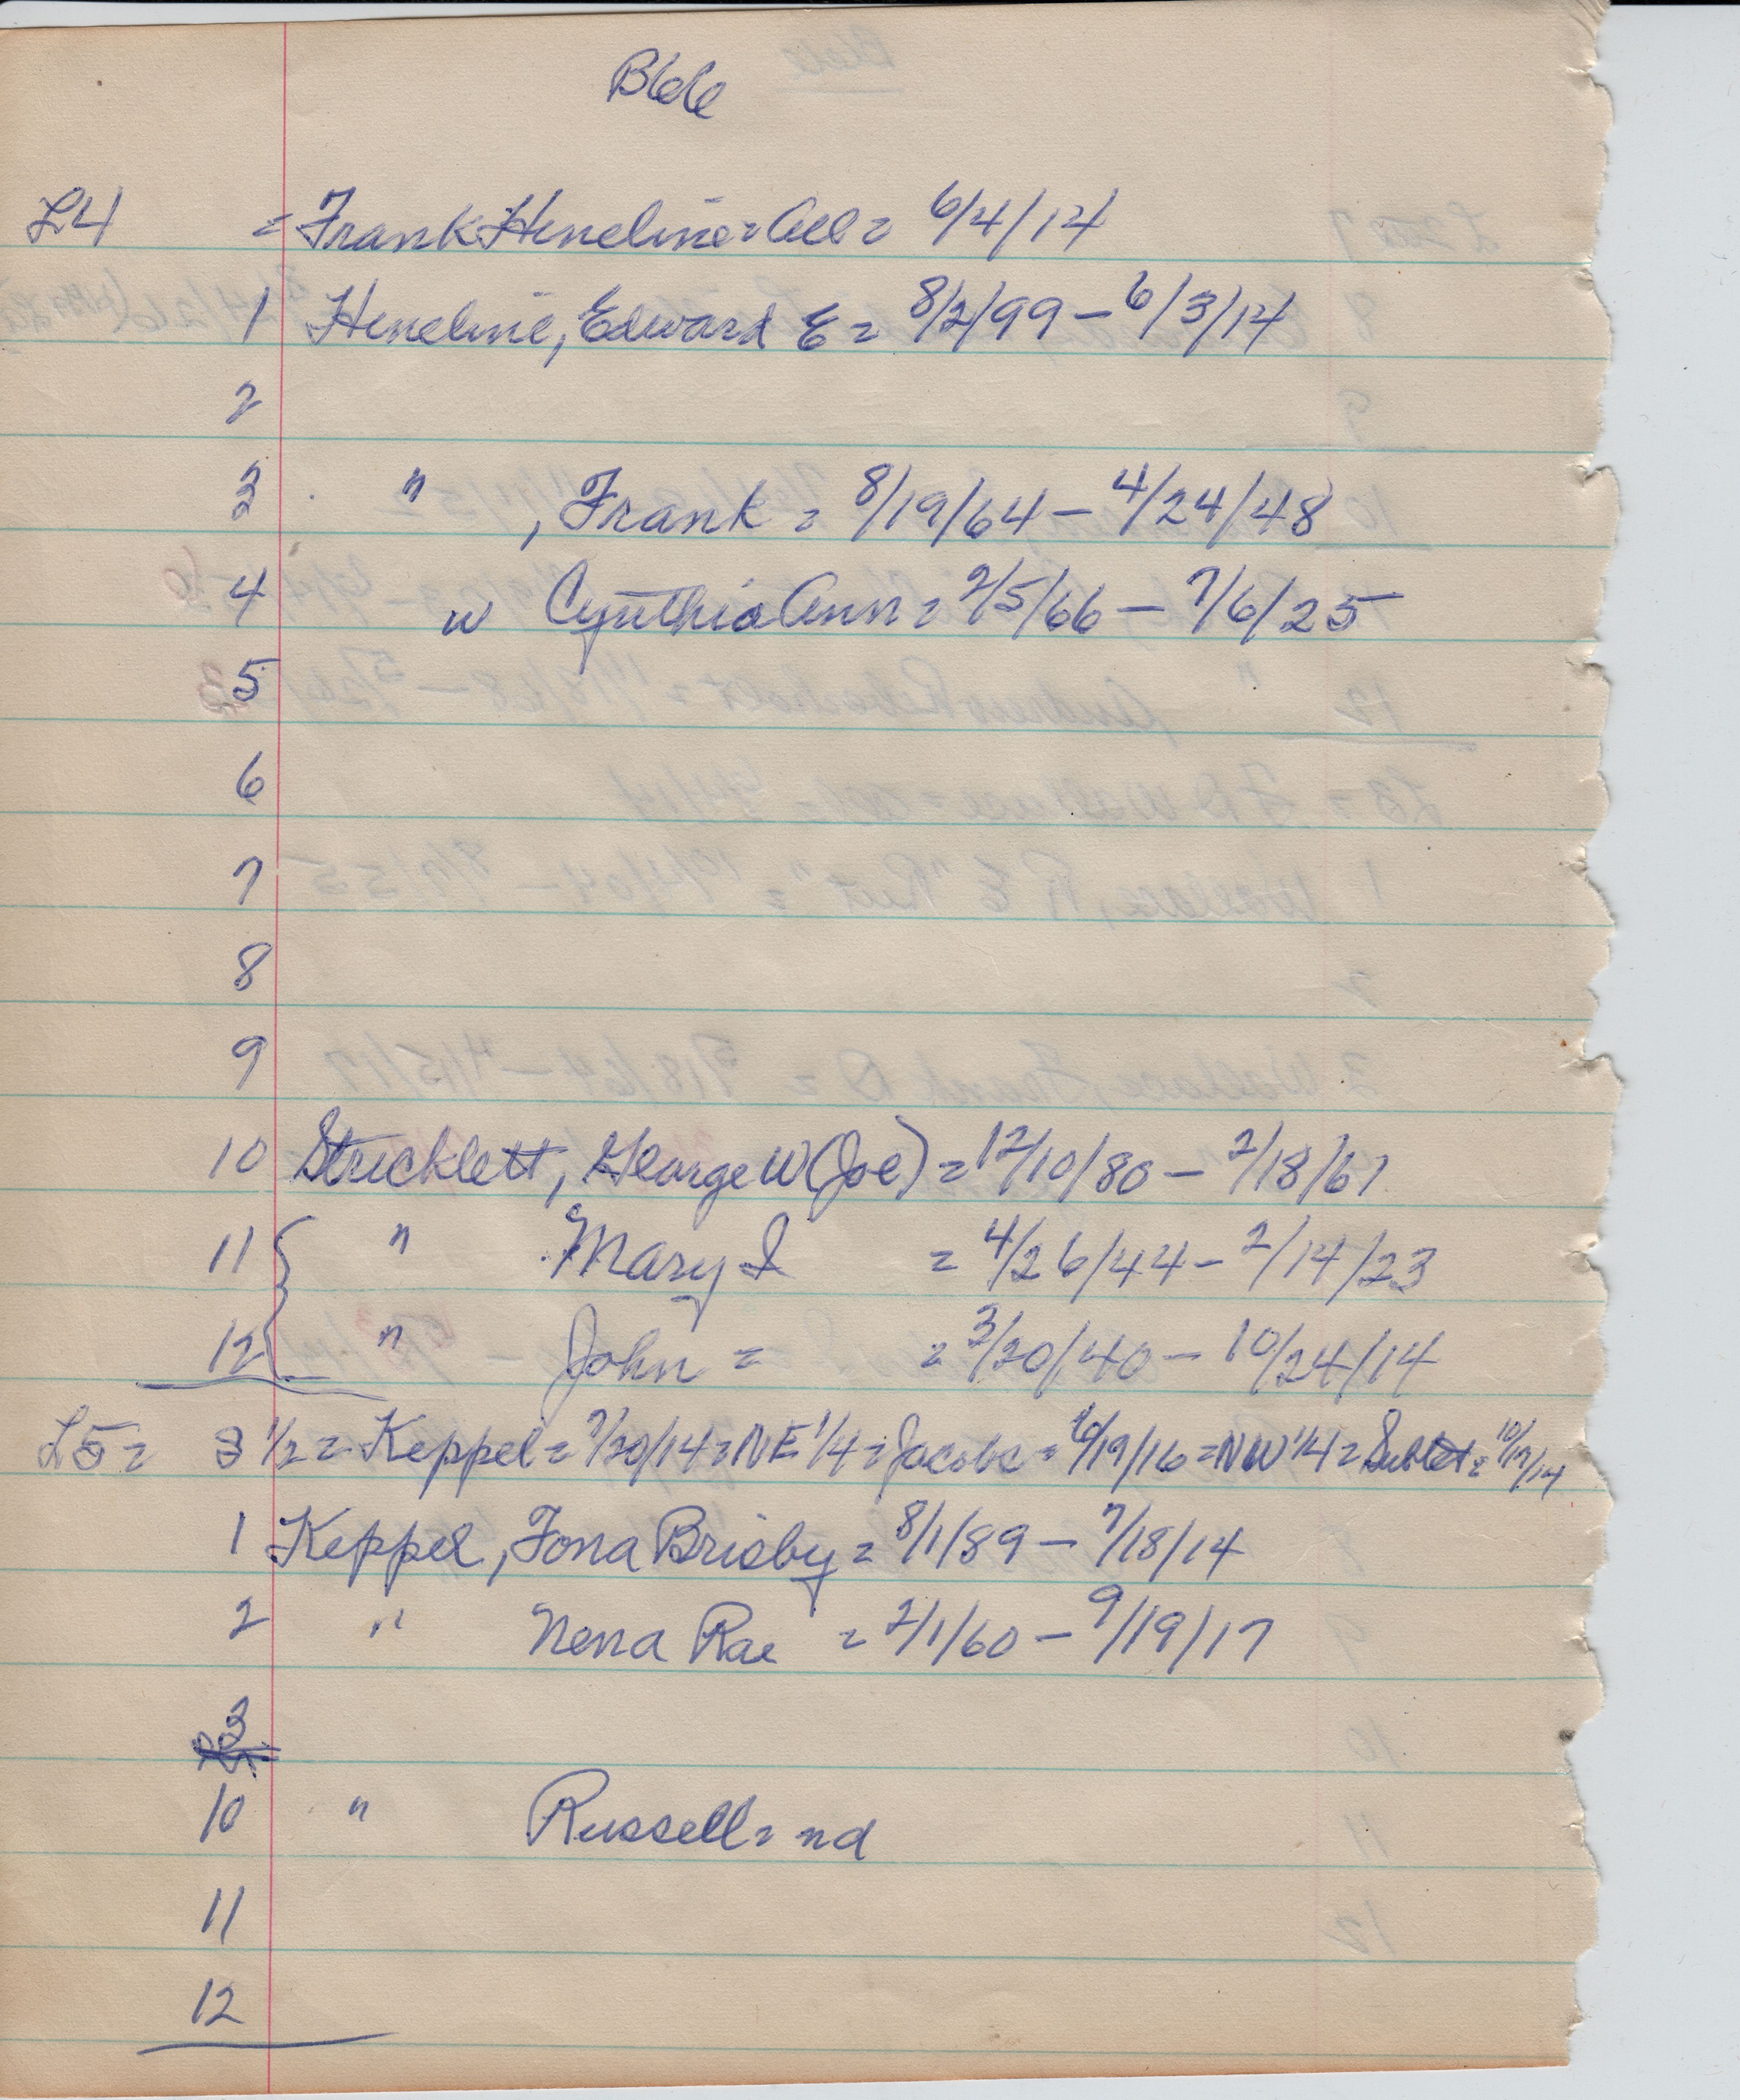 L4 = Frank Heneline = All = 6/4/14
1 Heneline, Edward E = 8/2/99 - 6/3/14
2
3 " , Frank = 8/19/64 - 4/24/48
4 w Cynthia Ann = 2/5/66 - 7/6/25
5
6
7
8
9
10 Stricklett, George W (Joe) = 12/10/80 - 2/18/61
11 " Mary I = 4/26/44 - 2/14/23
12 " John = = 3/20/40 - 10/24/14
L5 = S 1/2 = Keppel = 7/20/14 = NE 1/4 = Jacobs = /19/16 = NW 1/4 = Sublet = 10/17/14
1 Keppel, Fona Brisby = 8/1/89 - 7/18/14
2 " Nena Rae = 2/1/60 - 9/19/17
3
10 " Russell = nd
11
12